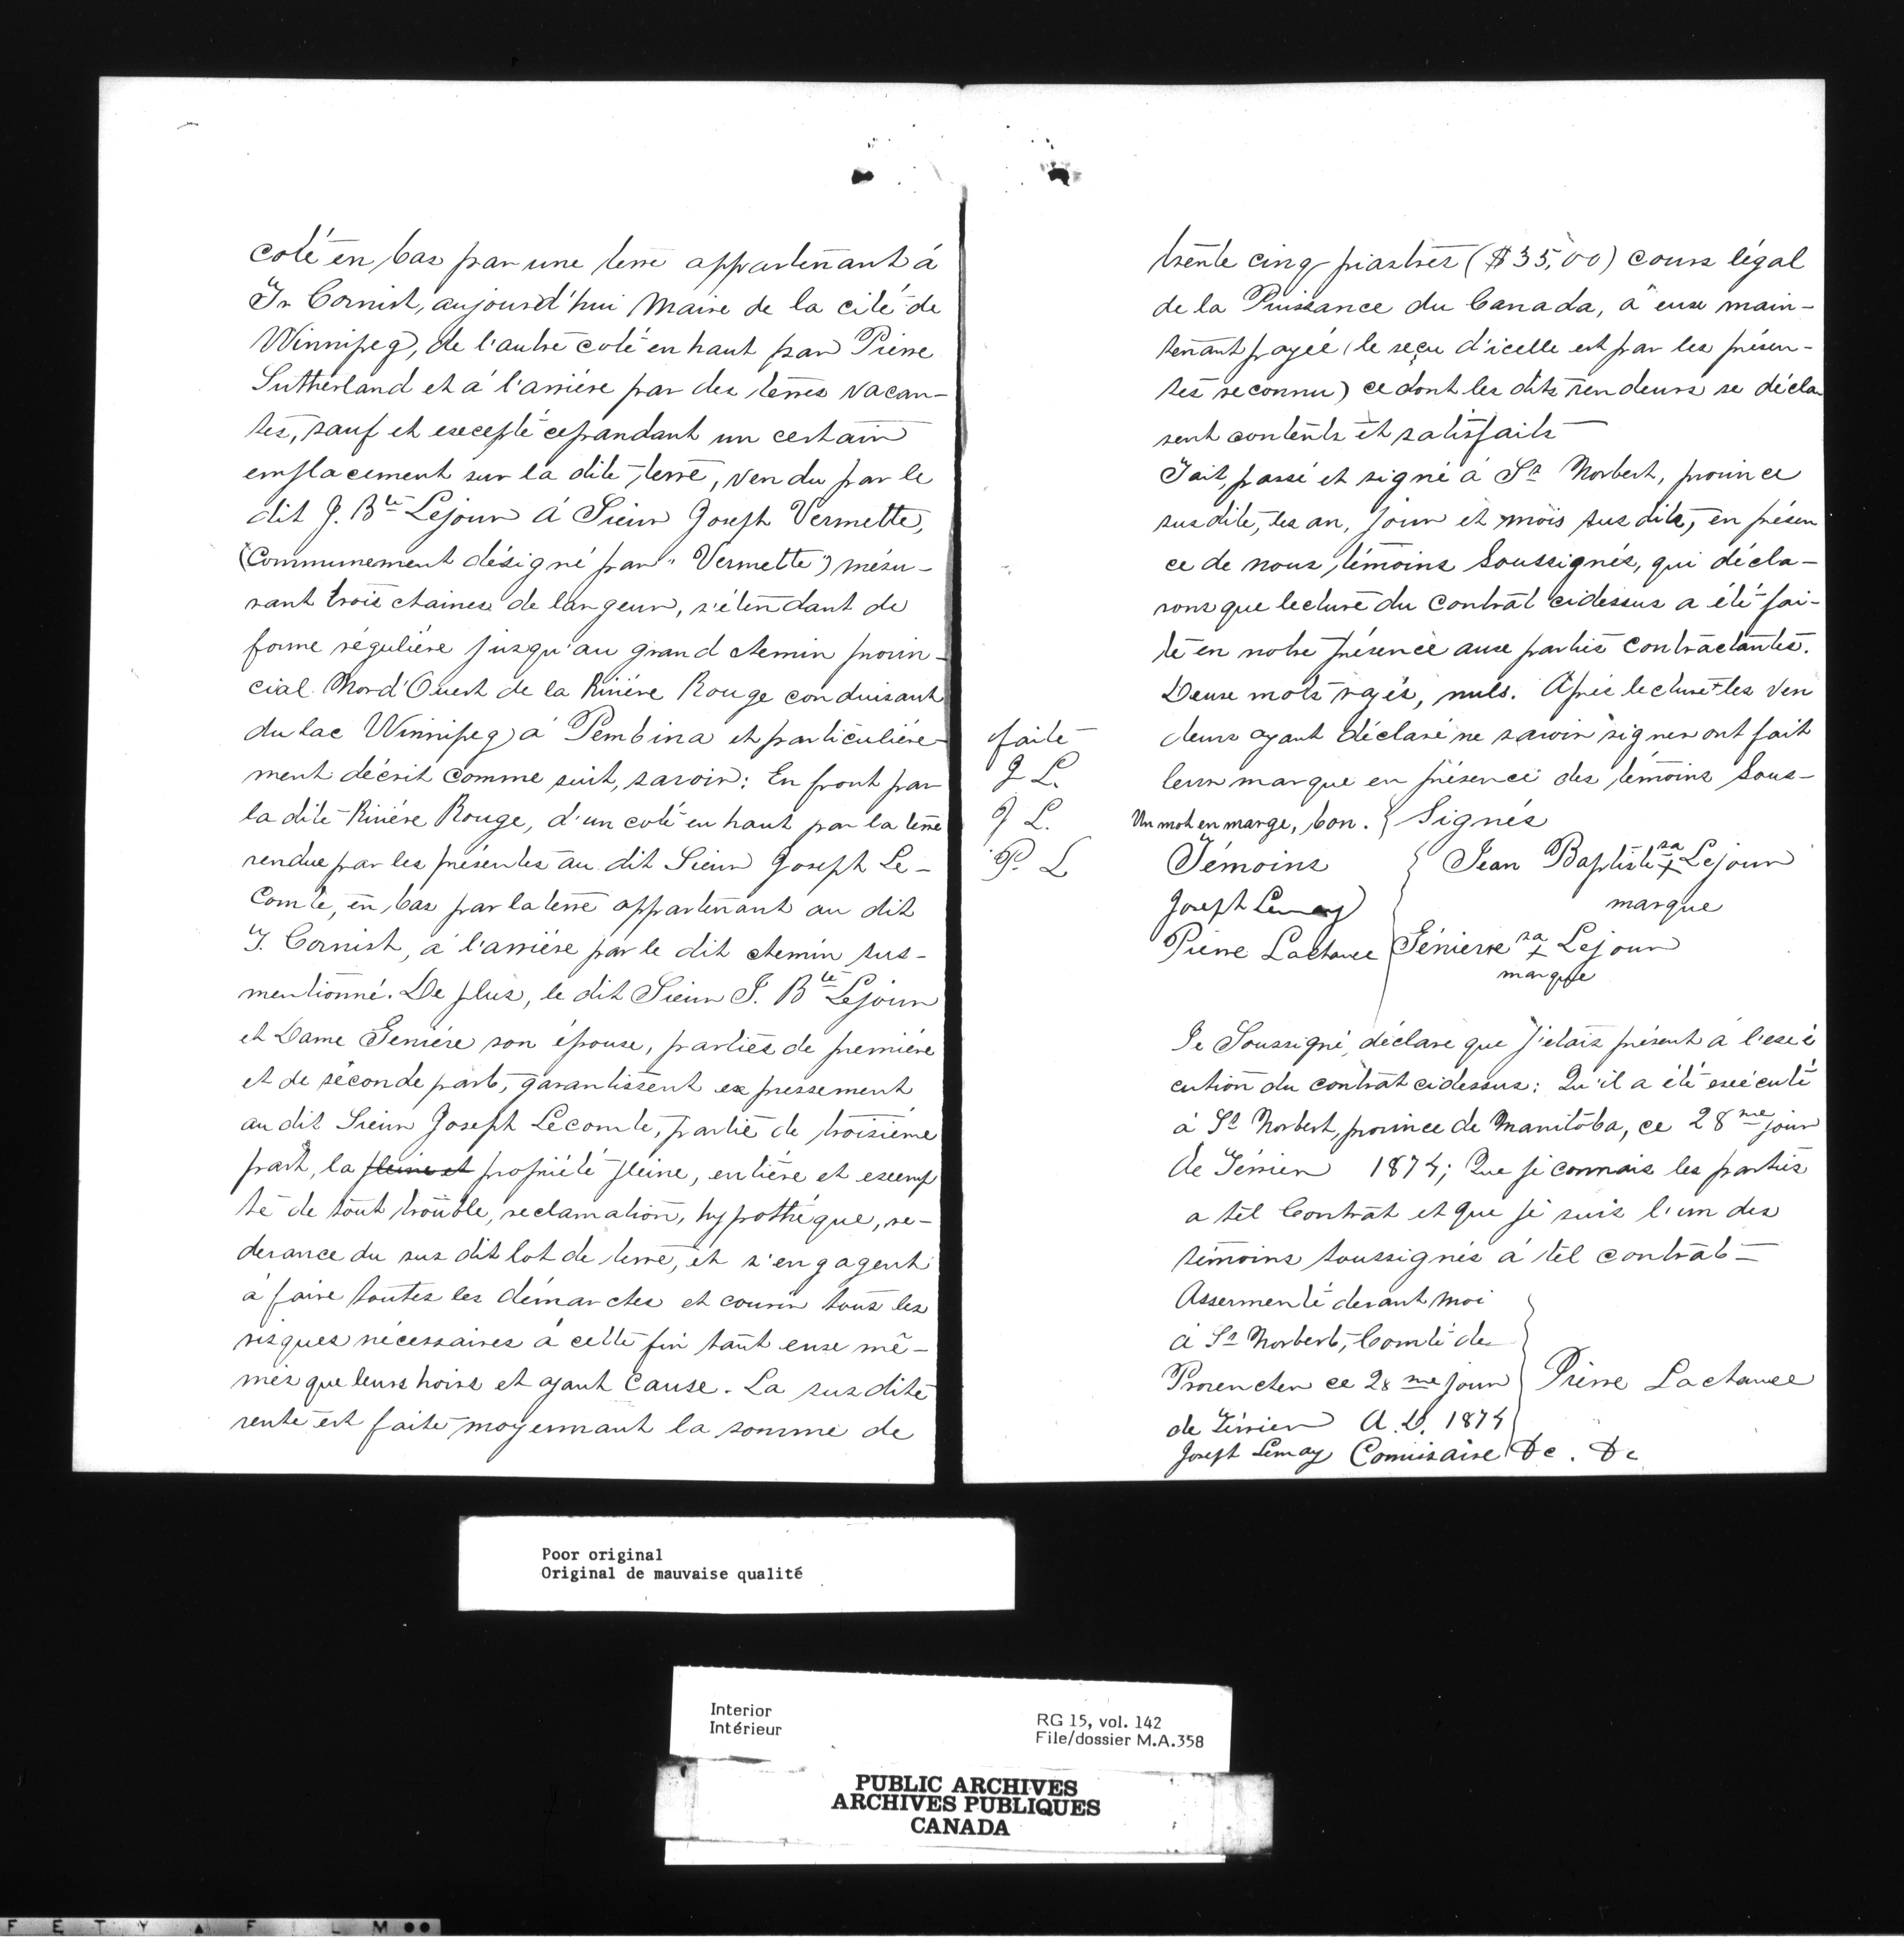 coté en bas par une terre appartenant á
Fr Cornish, aujourd'hui Maire de la cité de
Winnipeg, de l'autre coté en haut par Pierre
Sutherland et á l'arriére par des terres vacan-
tes, sauf et excepté cepandant un certain
emplacement sur la dite terre, vendu par le
dit J. Bte Lejour á Sieur Joseph Vermette,
(Communement désigné par " Vermette") mésu-
rant trois chaines de largeur, s'étendant de
forme réguliére jusqu'au grand chemin provin-
cial Nord'Ouest de la Riviére Rouge conduisant
du lac Winnipeg á Pembina et particuliére-
ment décrit comme suit, savoir: En front par
la dite Riviére Rouge, d'un coté en haut par la terre
vendue par les présentes au dit Sieur Joseph Le-
Comte, en bas par la terre appartenant au dit
F. Cornish, á l'arriére par le dit chemin sus-
mentionné. De plus, le dit Sieur J. Bte Lejour
et Dame Geniére son épouse, parties de premiére
et de seconde part, garantissent expressement
au dit Sieur Joseph Lecomte, partie de troisiéme
part, la pleine et propriété pleine, entiére et exemp
te de tout trouble, reclamation, hypothéque, re-
devance du sus dit lot de terre, et s'engagent
á faire toutes les démarches et courir tous les
risques nécessaires á cette fin tant eux mê-
mes que leurs hoirs et ayant cause. La sus dite
vente est faite moyennant la somme de
trente cinq piastres ($35,00) cours légal
de la Puissance du Canada, á eux main-
tenant payée (le reçu d'icelle est par les présen-
tes reconnu) ce dont les dits vendeurs se décla-
rent contents et satisfaits
Fait, passé et signé á St Norbert, province
susdite, les an, jour et mois susdits, en présen
ce de nous, témoins Soussignés, qui décla-
rons que lecture du contrat cidessus a été fai-
te en notre présence aux parties contractantes.
Deux mots rayés, nuls. Aprés lecture + les ven
deurs ayant déclaré ne savoir signer ont fait
leur marque en présence des témoins Sous-
faite
J L.
J L.
P. L
Un mot en marge, bon. Signés
Témoins Jean Baptiste sa x Lejour
Joseph Lemay marque
Pierre Lachance sa x Lejour
marque
Je Soussigné, déclare que j'etais présent á l'exé
cution du contrat cidessus: Qu'il a été exécuté
á St Norbert, province de Manitoba, ce 28me jour
de Février 1874; Que je connais les parties
a tel Contrat et que je suis l'un des
témoins soussignés á tel contrat
Assermenté devant moi
á St Norbert, Comté de
Provencher ce 28me jour Pierre Lachance
de Février A.D. 1874
Joseph Lemay Comisaire &c. &c
Poor original
Original de mauvaise qualité
Interior
Intérieur
RG 15, vol. 142
File/dossier M.A.358
PUBLIC ARCHIVES
ARCHIVES PUBLIQUES
CANADA
F E T Y ▲ F I L M ●●